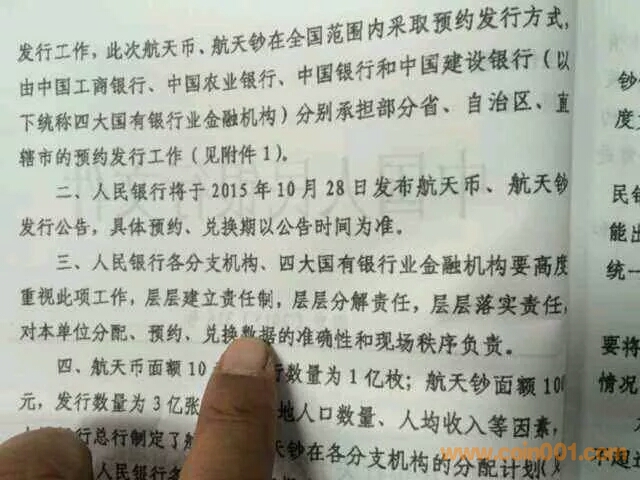 发行工作，此次航天币、航天钞在全国范围内采取预约发行方式，
由中国工商银行、中国农业银行、中国银行和中国建设银行（以
下统称四大国有银行业金融机构）分别承担部分省、自治区、直
辖市的预约发行工作（见附件1）。
二、人民银行将于2015年10月28日发布航天币、航天钞
发行公告，具体预约、兑换期以公告时间为准。
三、人民银行各分支机构、四大国有银行业金融机构要高度
重视此项工作，层层建立责任制，层层分解责任，层层落实责任，
对本单位分配、预约、兑换数据的准确性和现场秩序负责。
四、航天币面额10 行数量为1亿枚；航天钞面额100
元，发行数量为3亿张 地人口数量、人均收入等因素，
行总行制定了 天钞在各分支机构的分配计划（
人民银行各
钞
度
民银
能出
统一
要将
情况
www.coin001.com